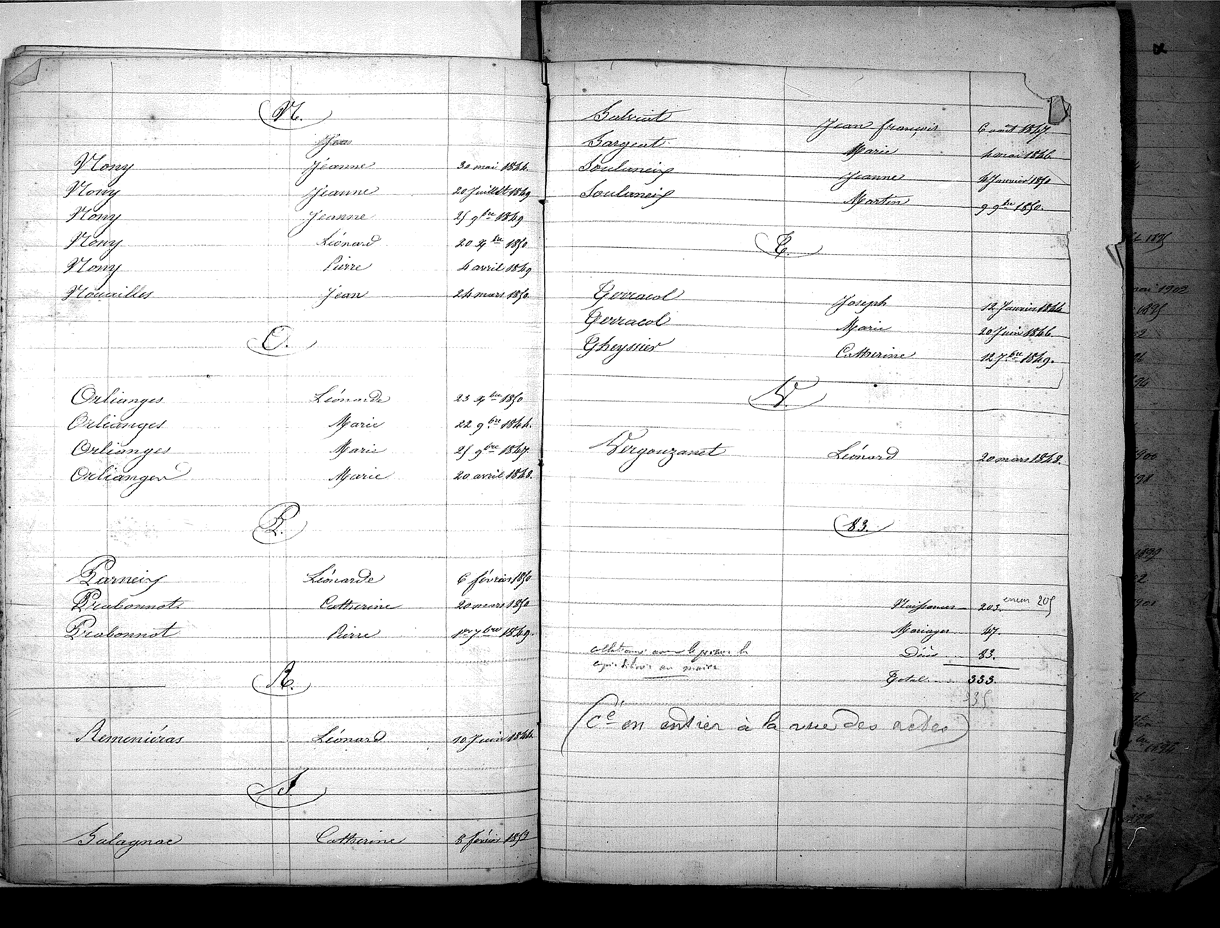 N.
Jean
Nony Jeanne 30 mai 1844.
Nony Jeanne 20 Juillet 1849
Nony Jeanne 25 9bre 1849
Nony Léonard 20 xbre 1850
Nony Pierre 4 avril 1849
Nouailles Jean 24 mars 1850.
O.
Orlianges Léonarde 23 xbre 1850
Orlianges Marie 22 9bre 1844.
Orlianges Marie 25 9bre 1847.
Orlianges Marie 20 avril 1848.
P.
Parneix Léonarde 6 février 1850
Prabonnot Catherine 20 mars 1850
Prabonnot Pierre 1er 7bre 1849.
R.
Remeniéras Léonard 10 Juin 1844.
S.
Salagnac Catherine 8 février
Salviat Jean françois 6 août 1847
Sargent Marie 4 mai 1846
Soulaneix Jeanne Janvier 1850
Soulaneix Martin 9 9bre 1850.
T.
Terracol Joseph 12 Janvier 1844
Terracol Marie 20 Juin 1846.
Theyssier Catherine 12 7bre 1849.
V.
Vergouzanet Léonard 20 mars 1848.
83.
Naissances 203. erreur 205
Mariages 47.
Décès 83.
Total 333.
335
(Cé en entier à la vue des actes)